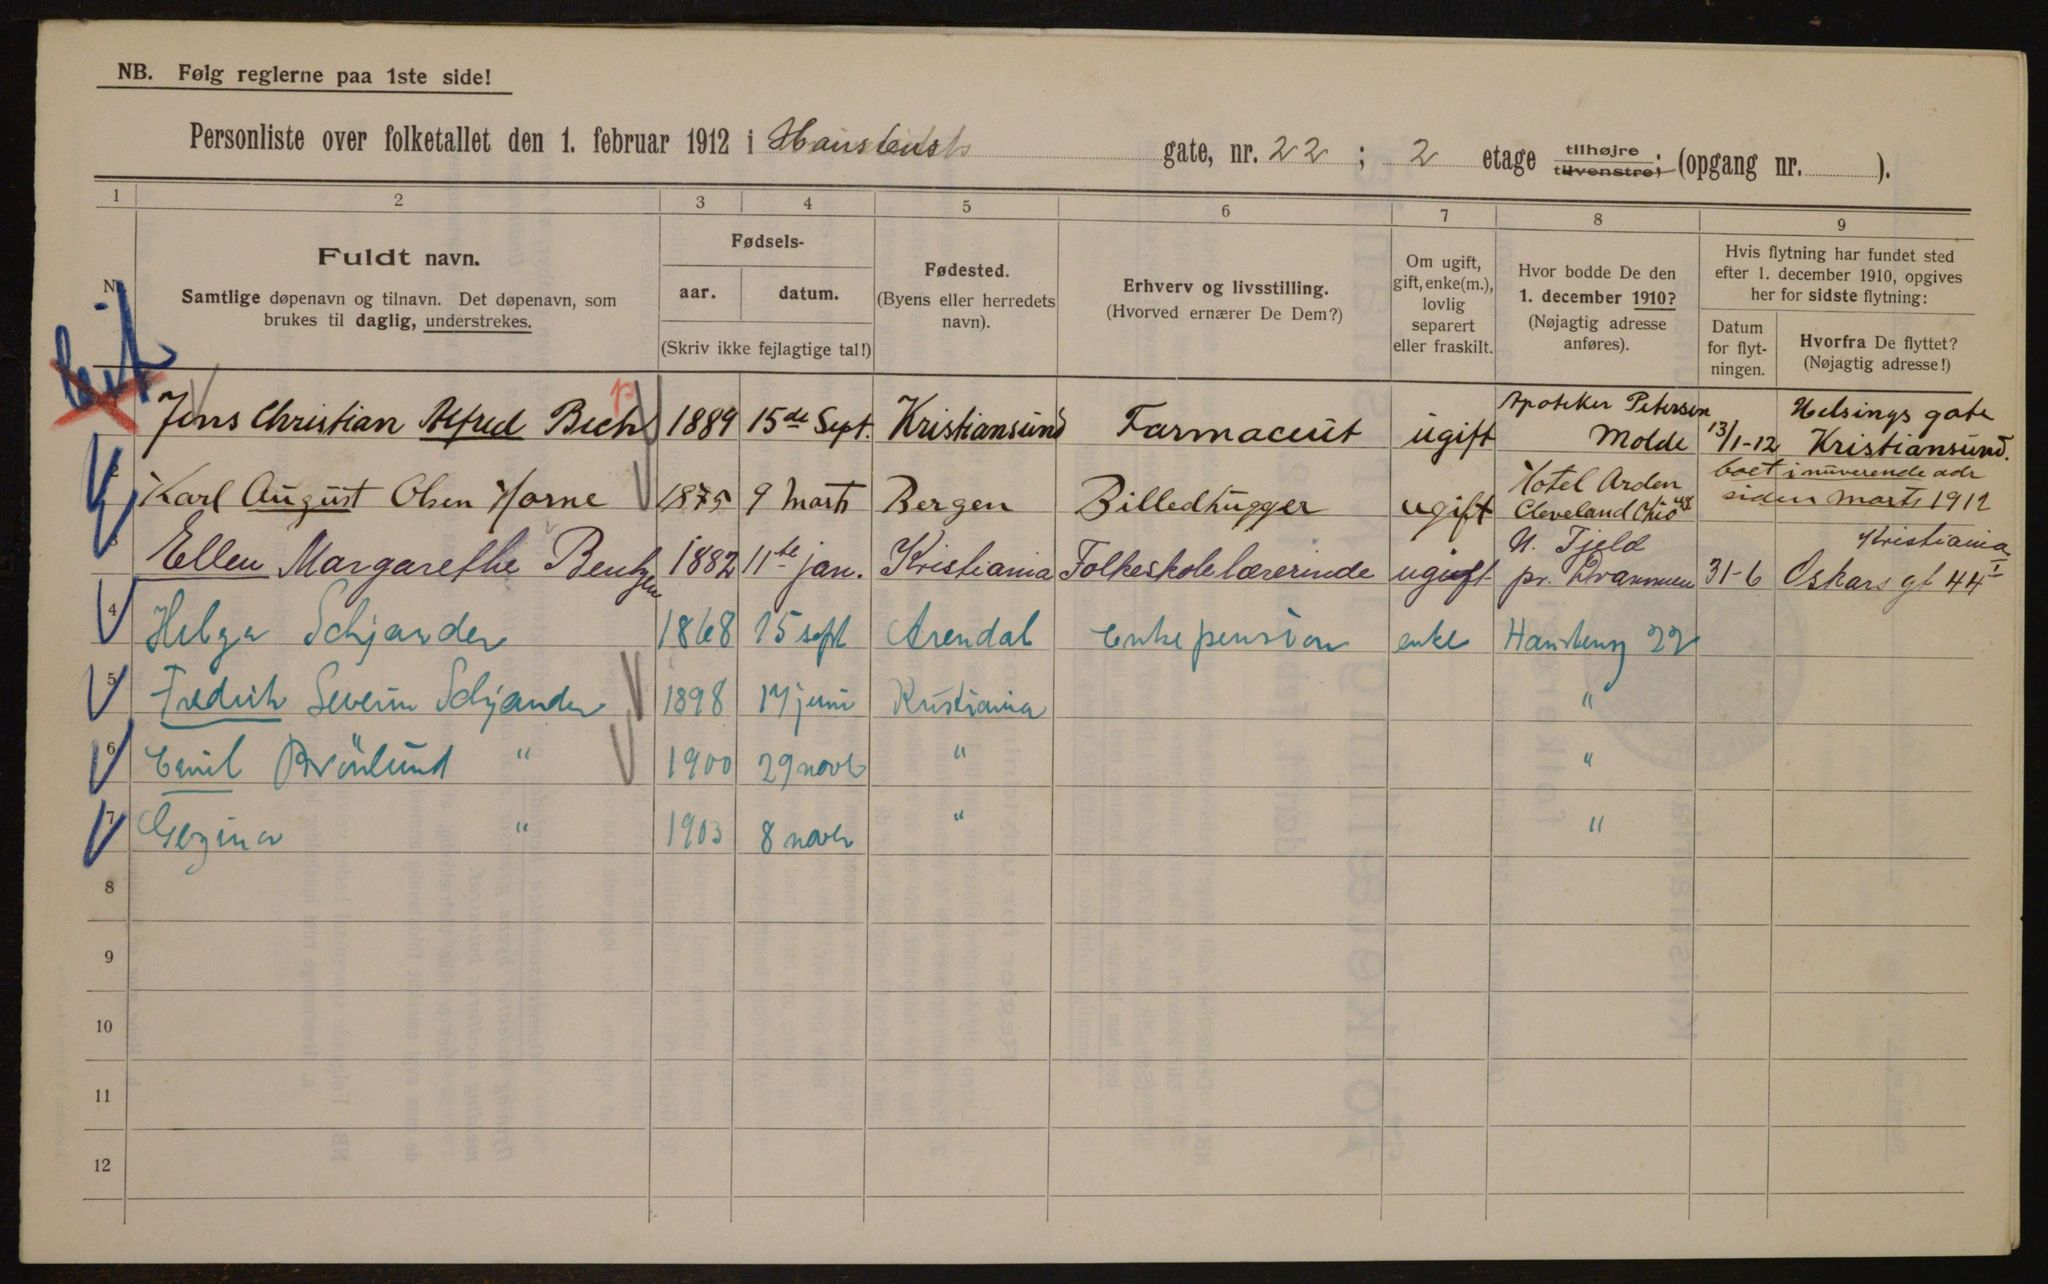 NB. Følg reglerne paa 1ste side!
Personliste over folketallet den 1. februar 1912 i Haustensts gate, nr. 22 ; 2 etage tilhøjre tilvenstre; (opgang nr. ).
1 2 3 4 5 6 7 8 9
Fuldt navn.
Samtlige døpenavn og tilnavn. Det døpenavn, som
brukes til daglig, understrekes.
Fødsels-
aar. datum.
(Skriv ikke fejlagtige tal!)
Fødested.
(Byens eller herredets
navn).
Erhverv og livsstilling.
(Hvorved ernærer De Dem?)
Om ugift,
gift, enke(m.),
lovlig
separert
eller fraskilt.
Hvor bodde De den
1. december 1910?
(Nøjagtig adresse
anføres).
Hvis flytning har fundet sted
efter 1. december 1910, opgives
her for sidste flytning:
Datum
for flyt-
ningen.
Hvorfra De flyttet?
(Nøjagtig adresse!)
Jens Christian Alfred Bech 1889 15de Sept. Kristiansund Farmaceut ugift Apoteker Petersen Molde 13/1-12 Helsings gate Kristiansund.
Karl August Olsen Horne 1875 9 Marts Bergen Billedhugger ugift Hotel Arden Cleveland Ohio boet i nuverende adr siden marts 1912
3 Ellen Margarethe Bentzen 1882 11te jan. Kristiania Folkeskolelærerinde ugift N. Fjeld pr. Drammen 31-6 Kristiania Oskars gt 44 I
4 Helga Schjander 1868 15 sept Arendal Enkepension enke Haustensg 22
5 Fredrik Severin Schjander 1898 17 juni Kristiania "
6 Emil Brönlund " 1900 29 novb " "
7 Gezina " 1903 8 novb " "
8
9
10
11
12